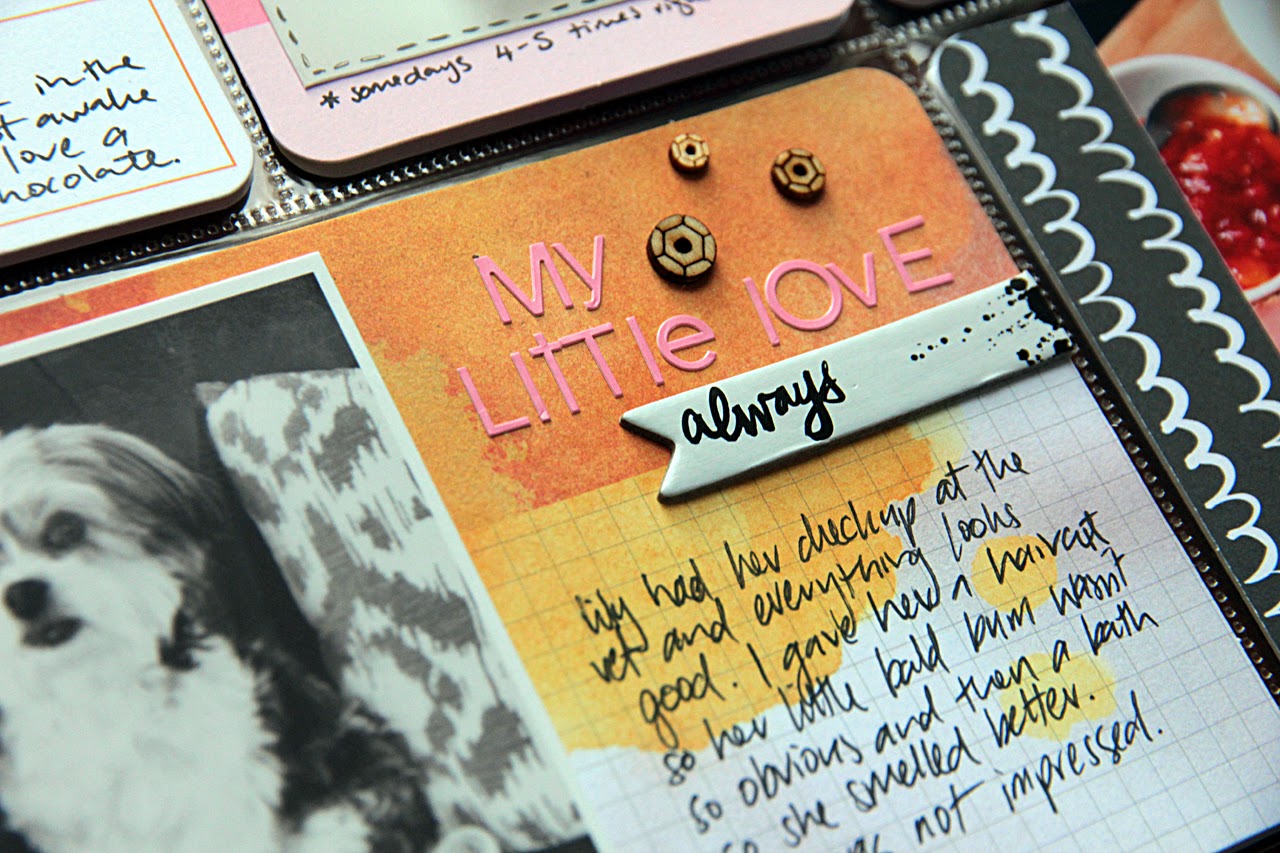 in the
awake
love a
chocolate.
* somedays 4-5 times
My
LITTLe lOVE
always
lily had her checkup at the
vet and everything looks
good. I gave her a haircut
so her little bald bum wasn't
so obvious and then a bath
so she smelled better.
not impressed.